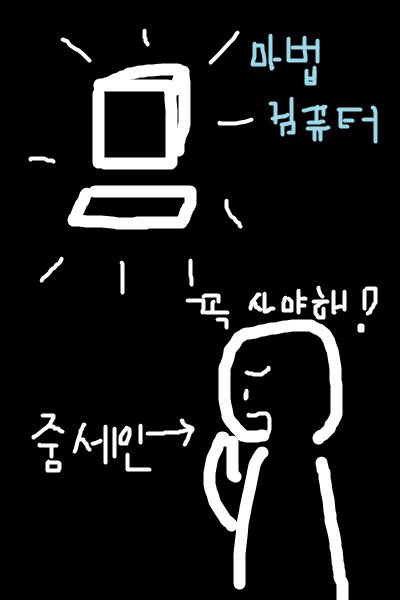 마법
컴퓨터
꼭 사야해!
줌세인→